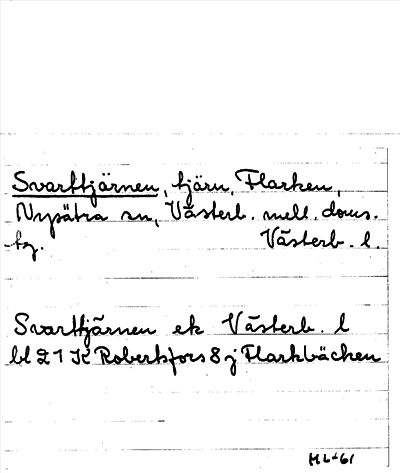 Svarttjärnen, tjärn, Flarken,
Nysätra sn, Västerb. mell. doms.
tg. Västerb. l.
Svarttjärnen ek Västerb. l
bl 21 K Robertsfors 8 j Flarkbäcken
ML-61